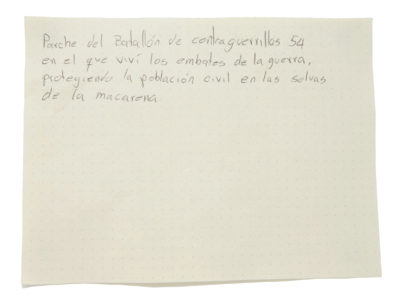 Parche del Batallón de contraguerrillas 54
en el que viví los embates de la guerra,
protegiendo la población civil en las selvas
de la macarena.